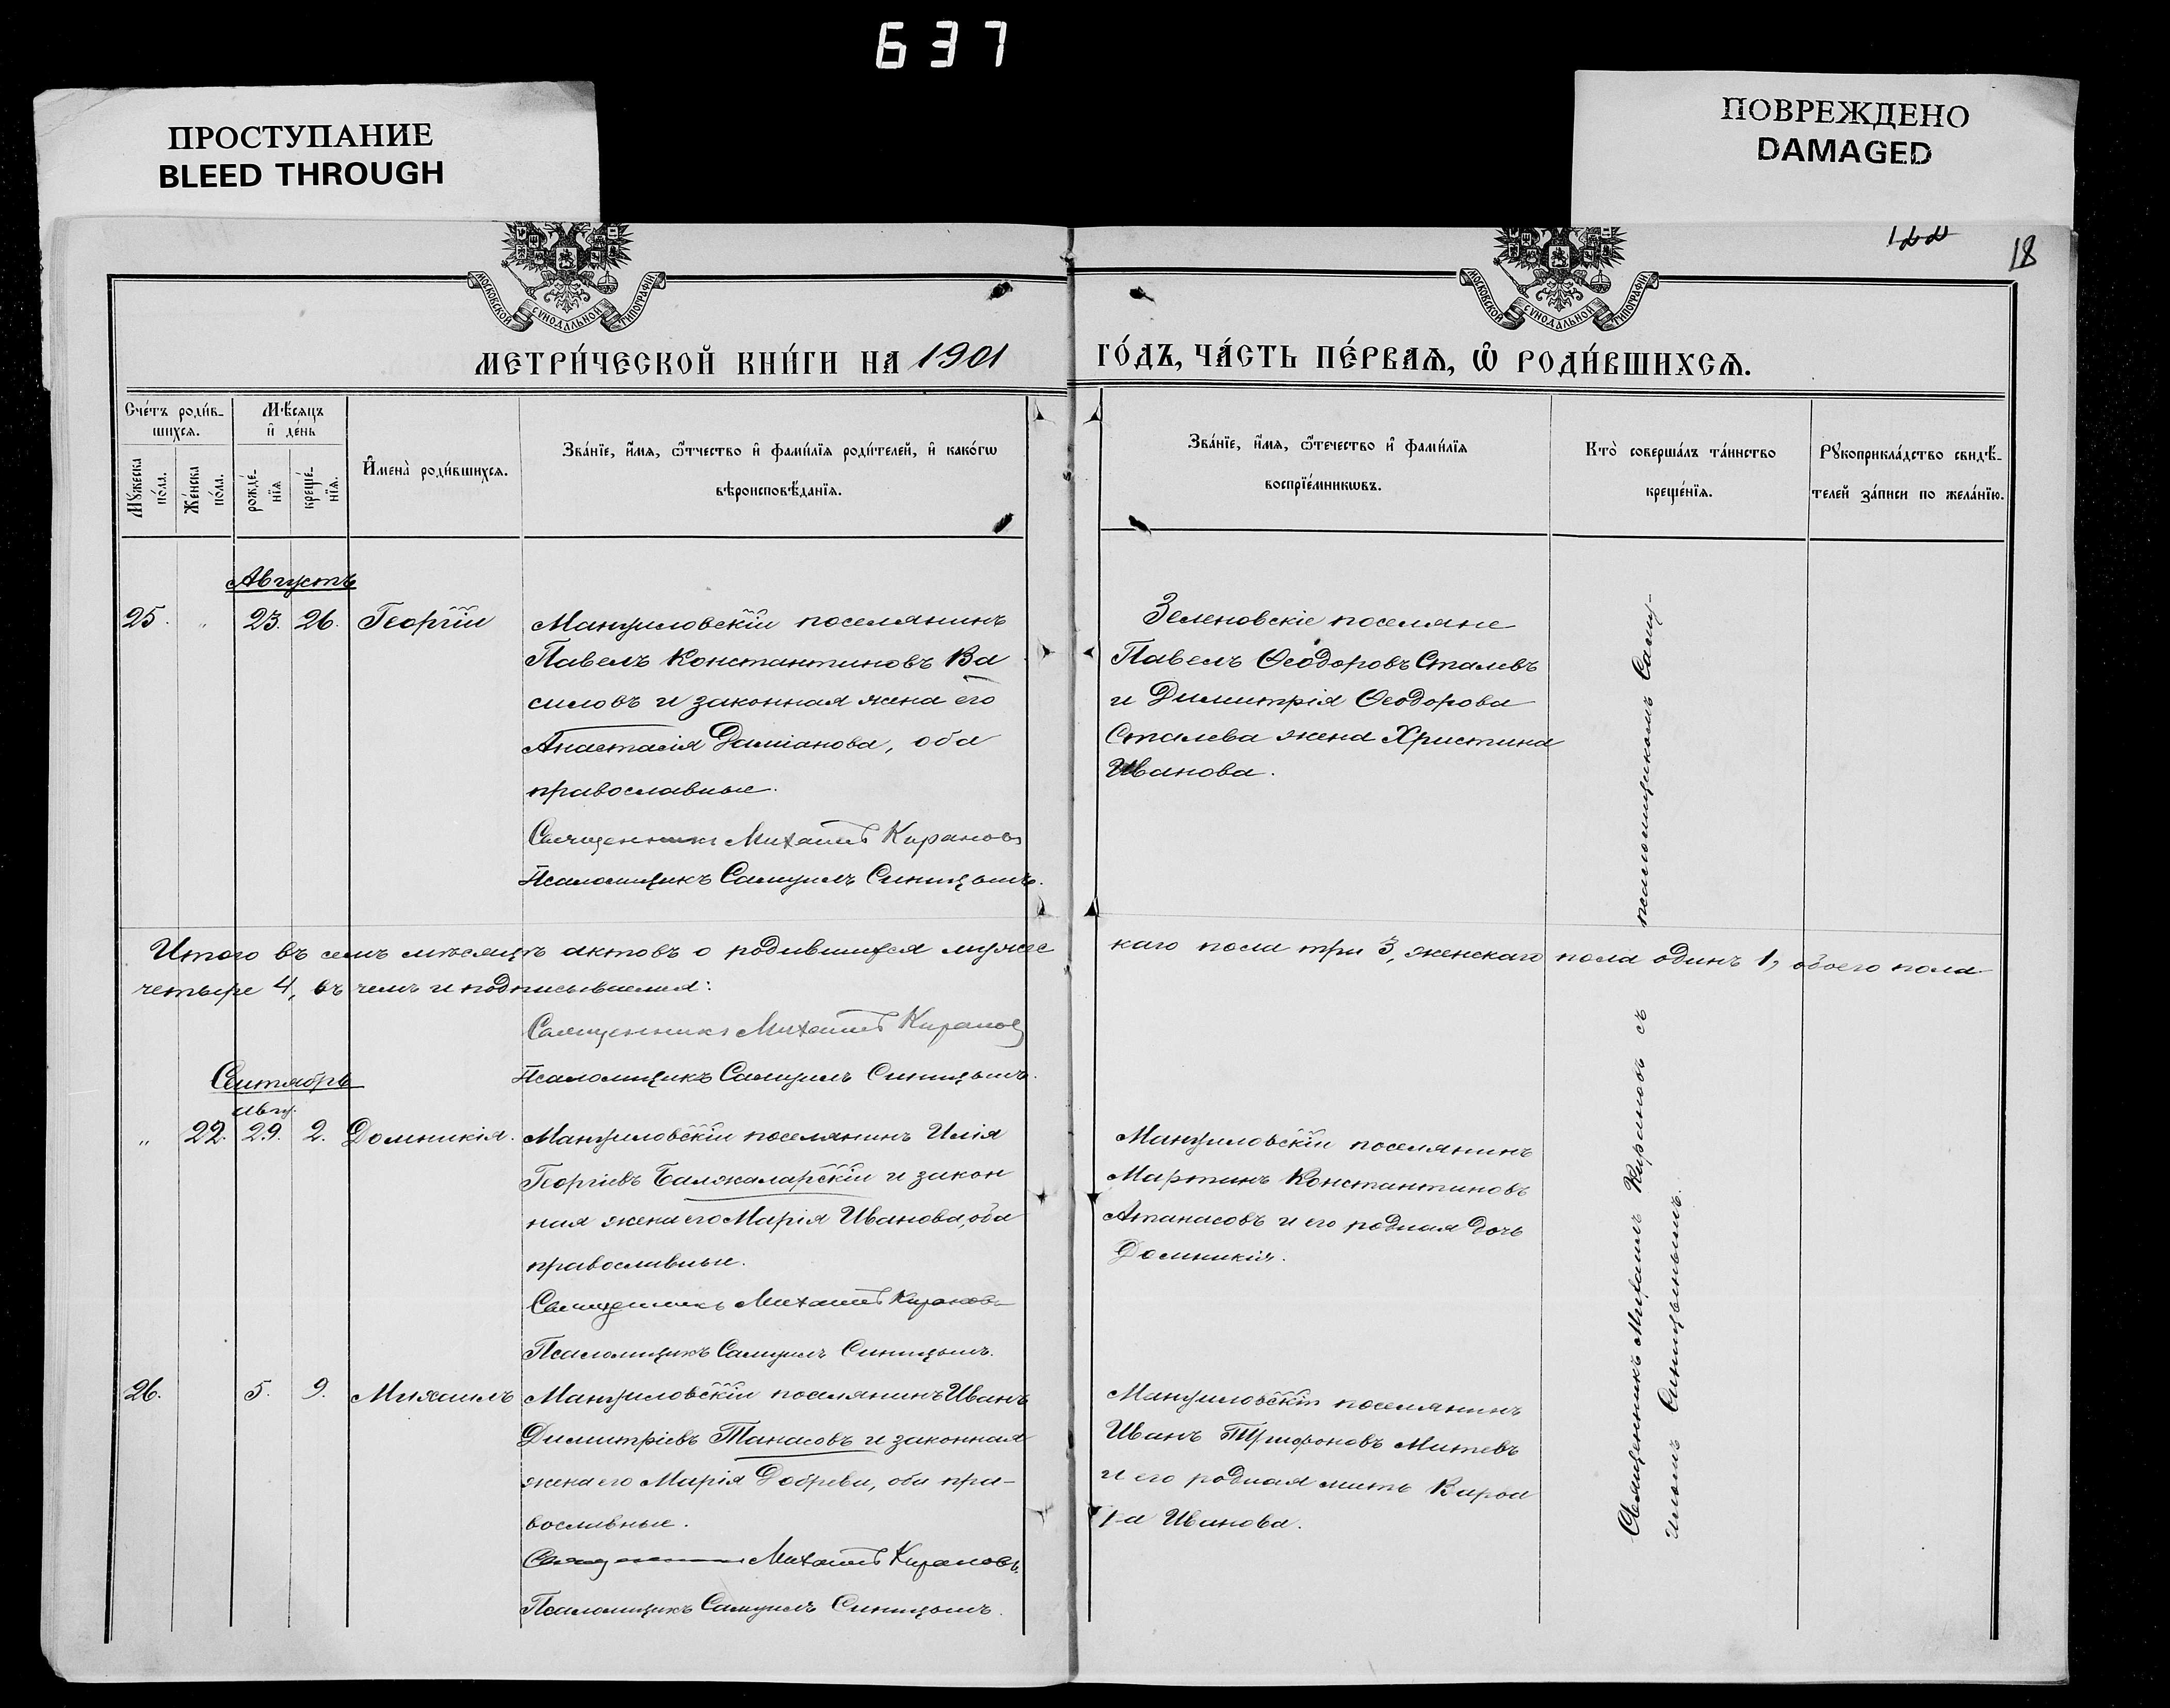 637
ПРОСТУПАНИЕ
BLEED THROUGH
ПОВРЕЖДЕНО
DAMAGED
18
МОСКОВСКОЙ СУНОДАЛЬНОЙ ТИПОГРАФІИ
МОСКОВСКОЙ СУНОДАЛЬНОЙ ТИПОГРАФІИ
МЕТРИ́ЧЕСКОЙ КНИ́ГИ НА 1901 ГО́ДЪ, ЧА́СТЬ ПЕ́РВАѦ, Ѡ҆ РОДИ́ВШИХСѦ.
Сче́тъ роди́в-
шихсѧ.
Мꙋ́жеска по́ла.
Же́нска по́ла.
Мѣ́сѧцъ
и҆ де́нь
рожде́-
нїѧ
креще́-
нїѧ.
И҆мена̀ роди́вшихсѧ.
Зва́нїе, и҆́мѧ, ѻ҆́тчество и҆ фами́лїѧ роди́телей, и҆ како́гѡ
вѣроисповѣ́данїѧ.
Зва́нїе, и҆́мѧ, ѻ҆те́чество и҆ фами́лїѧ
воспрїе́мникѡвъ.
Кто̀ соверша́лъ та́инство
креще́нїѧ.
Рꙋкоприкла́дство свидѣ́-
телей за́писи по жела́нїю.
Августъ
25. „ 23. 26. Георгій
Мануиловскій поселянинъ
Павелъ Константиновъ Ва
силовъ и законная жена его
Анастасія Даміанова, оба
православные.
Священникъ Михаилъ Кирановъ
Псаломщикъ Самуилъ Синицынъ.
Зеленовскіе поселяне
Павелъ Ѳеодоровъ Сталевъ
и Димитрія Ѳеодорова
Сталева жена Христина
Иванова.
Итого въ семъ мѣсяцѣ актовъ о родившихся мужес каго пола три 3, женскаго пола одинъ 1, обоего пола
четыре 4, въ чемъ и подписываемся:
Священникъ Михаилъ Кирановъ
Псаломщикъ Самуилъ Синицынъ.
Сентябрь
Авгу.
„ 22. 29. 2. Домникія.
Мануиловскій поселянинъ Илія
Георгіевъ Балжаларскій и закон
ная жена его Марія Иванова, оба
православные.
Священникъ Михаилъ Кирановъ
Псаломщикъ Самуилъ Синицынъ.
Мануиловскій поселянинъ
Мартинъ Константиновъ
Атанасовъ и его родная дочь
Домникія.
26. 5. 9. Михаилъ
Мануиловскій поселянинъ Иванъ
Димитріевъ Танасовъ и законная
жена его Марія Добрева, оба пра-
вославные.
Священникъ Михаилъ Кирановъ.
Псаломщикъ Самуилъ Синицынъ.
Мануиловскій поселянинъ
Иванъ Трифоновъ Митевъ
и его родная мать
Иванова.
Священникъ Михаилъ Кирановъ съ псаломщикомъ Саму-
иломъ Синицынымъ.